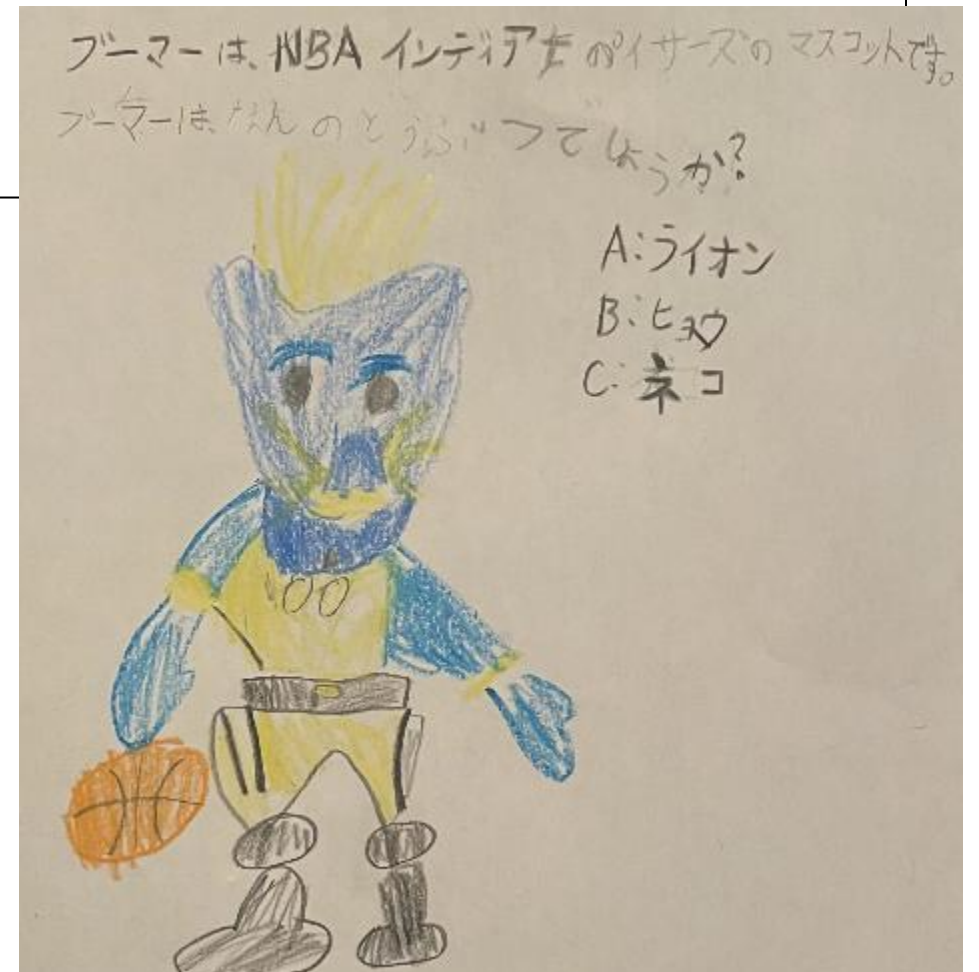 ブーマーは、NBA インディアナ ペイサーズの マスコットです。
ブーマーは、なんのどうぶつでしょうか?
A:ライオン
B:ヒョウ
C:ネコ
00